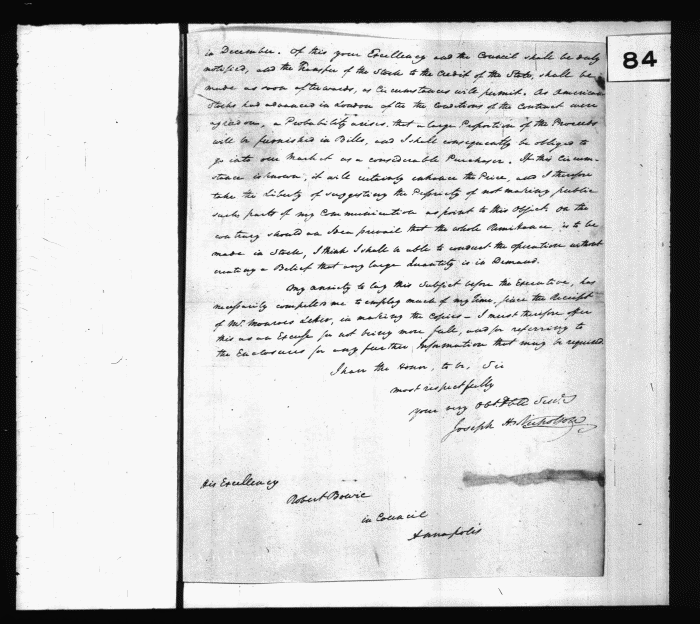 84
in December. Of this your Excellency and the Council shall be duly
notified, and the Transfer of the Stock to the Credit of the State, shall be
made as soon afterwards, as Circumstances will permit. As American
Stocks had advanced in London after the Conditions of the Contract were
agreed on, a Probability arises, that a large Proportion of the Proceeds
will be furnished in Bills, and I shall consequently be obliged to
go into our Market as a considerable Purchaser. If this Circum-
stance is known, it will certainly enhance the Price, and I therefore
take the Liberty of suggesting the Propriety of not making public
such parts of my Communication as point to this Object. On the
contrary should an Idea prevail that the whole Remittance is to be
made in Stock, I think I shall be able to conduct the operation without
creating a Belief that any large Quantity is in Demand.
My anxiety to lay this Subject before the Executive, has
necessarily compelled me to employ much of my time, since the Receipt
of Mr. Monroes Letter, in making the Copies - I must therefore offer
this as an Excuse for not being more full, and for referring to
the Enclosures for any further Information that may be required.
I have the Honor, to be, Sir
most respectfully
your very Obt. Servt.
Joseph H. Nicholson
His Excellency
Robert Bowie
in Council
Annapolis